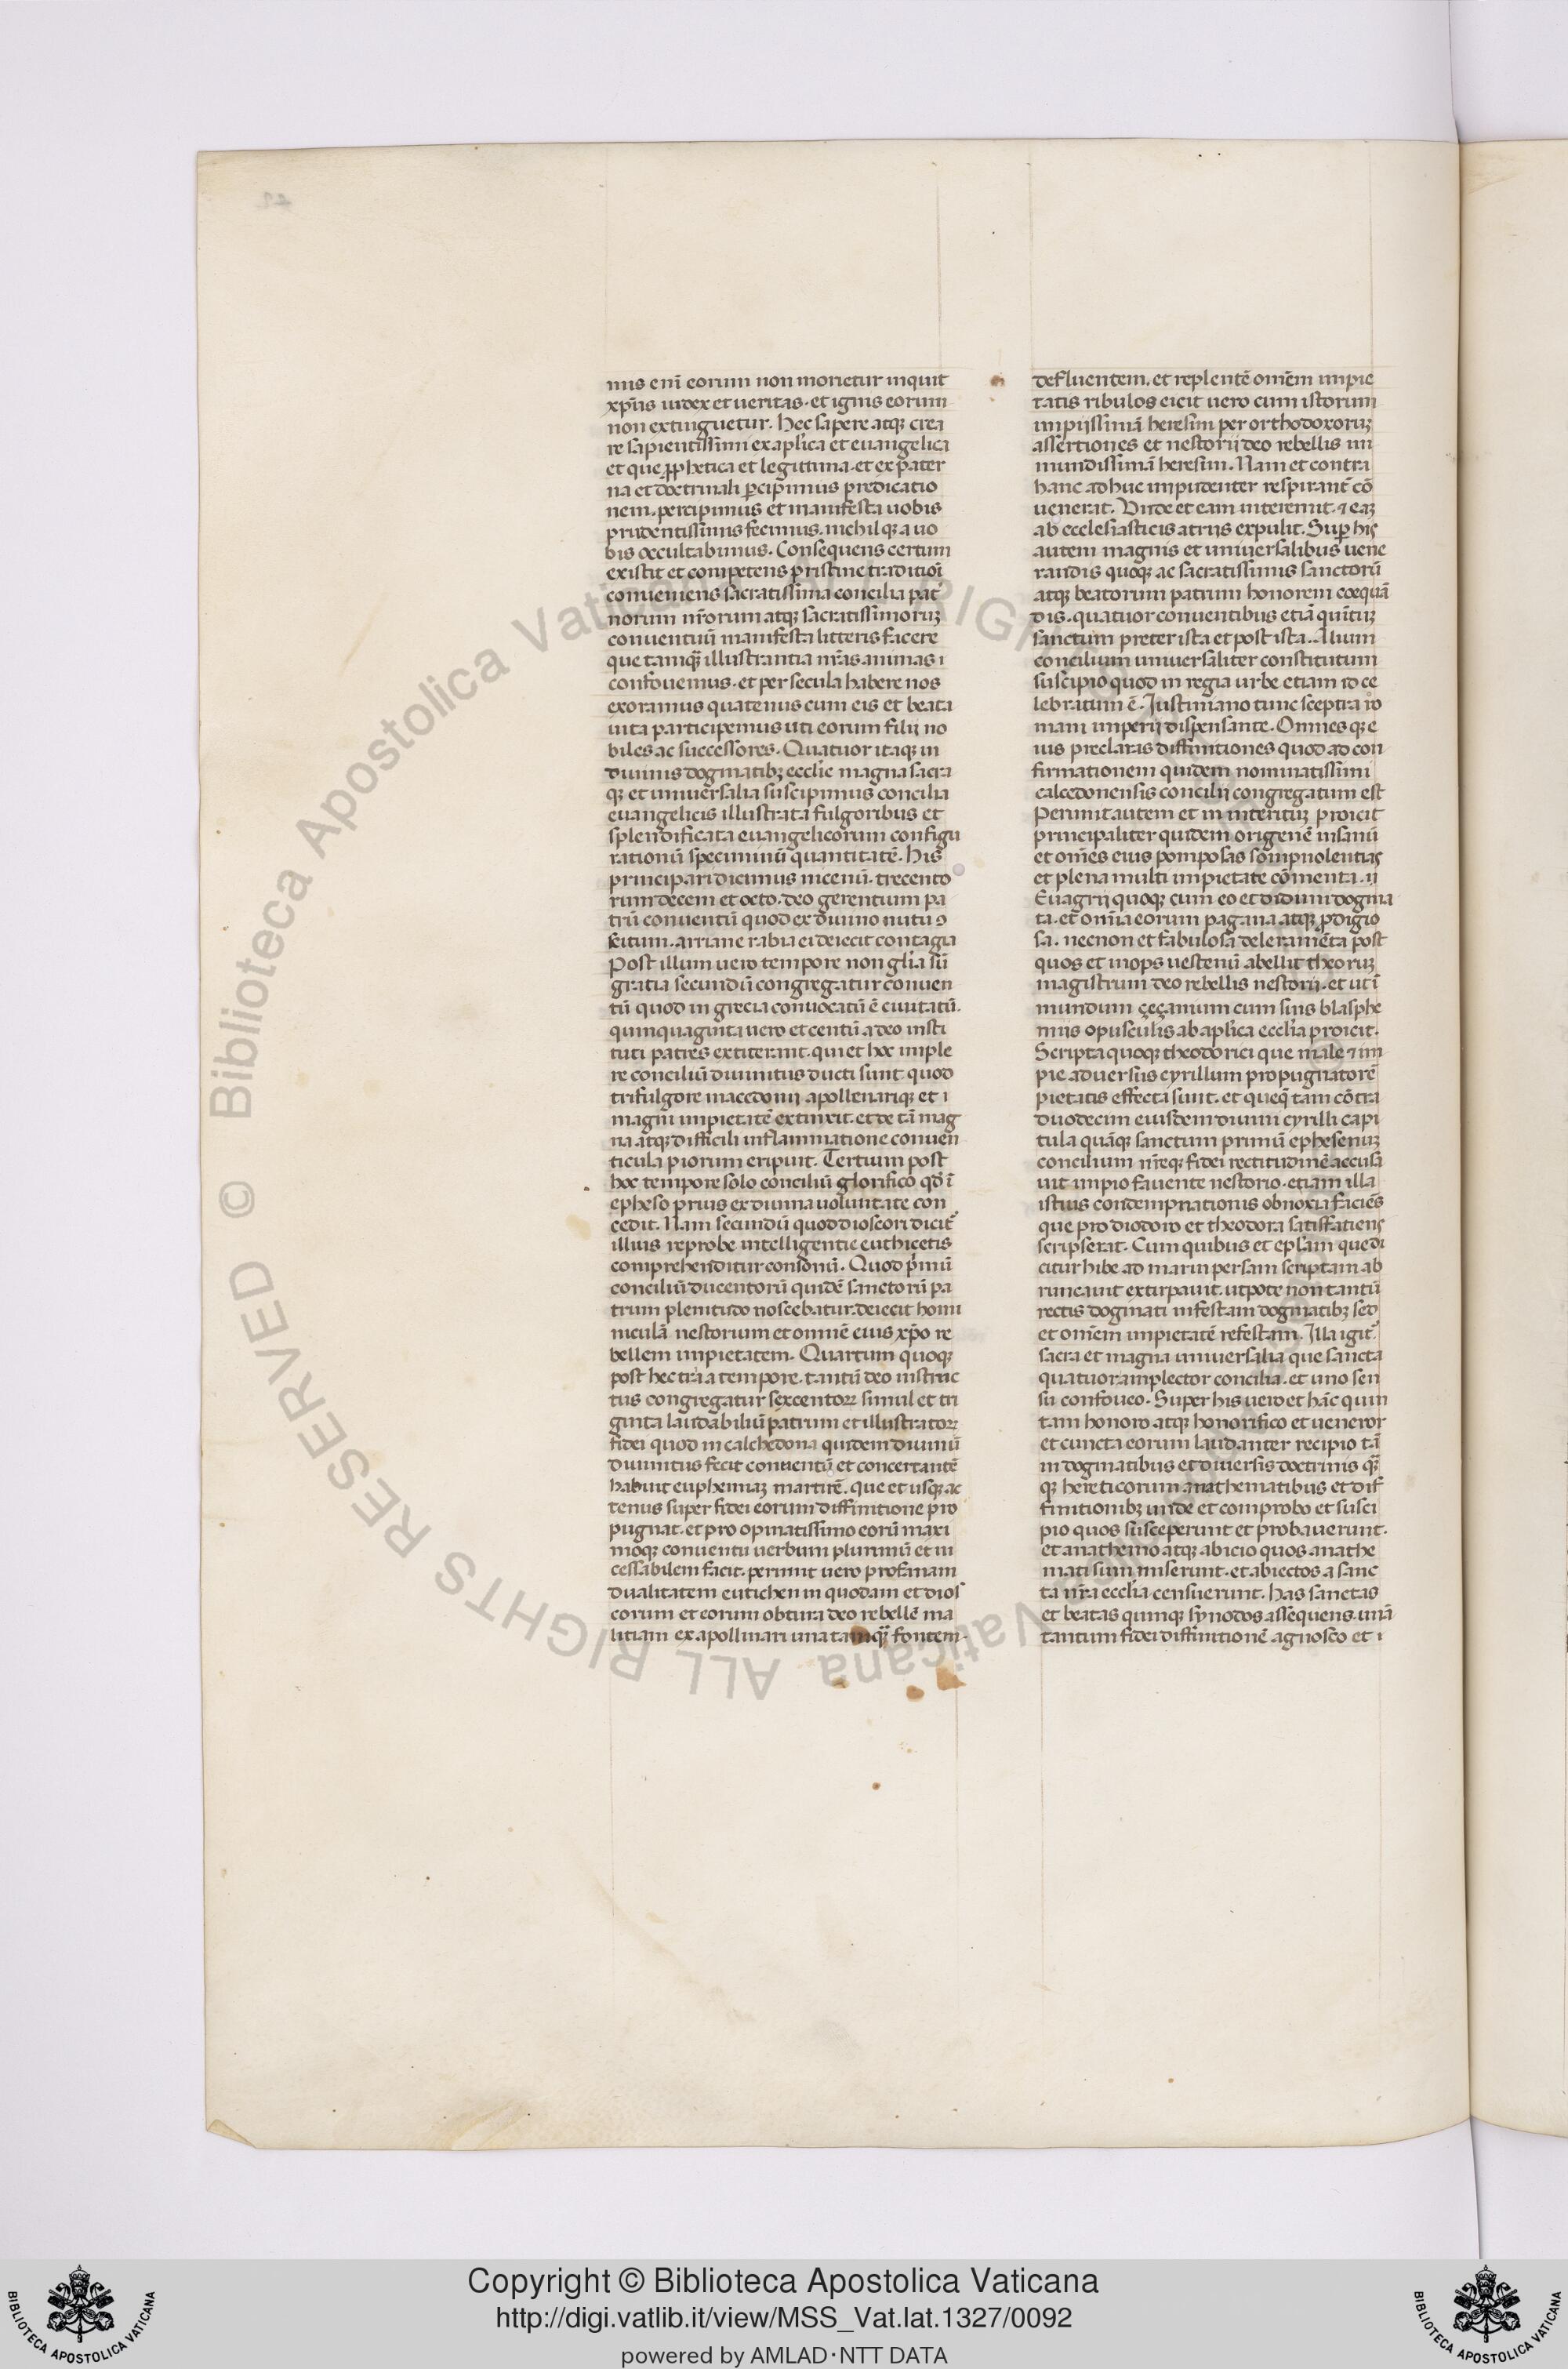 mis eni eorum non morietur inquit
xpūs iudex et ueritas. et ignis eorum
non extinguetur. Hec sapere atqꝫ crea
re sapientissimi ex aplica et euangelica
et que ꝓphetica et legittima. et ex pater
na et doctrinali ꝑcipimus predicatio
nem. percipimus et manifesta uobis
prudentissimis fecimus. nichilqꝫ a uo
bis occultabimus. Consequens certum
existit et competens pristine traditioī
conueniens sacratissima concilia pat
norum nr̄orum atqꝫ sacratissimoruꝫ
conuentuū manifesta litteris facere
que tamqȝ illustrantia nr̄as animas ī
confouemus. et per secula habere nos
exoramus quatenus cum eis et beata
uita participemus uti eorum filij no
biles ac successores. Quatuor itaqꝫ in
diuinis dogmatibꝫ ecclie magna sacra
qꝫ et uniuersalia suscipimus concilia
euangelicis illustrata fulgoribus et
splendificata euangelicorum configu
rationū speciminū quantitatē. His
principari dicimus nicenū. trecento
rum decem et octo. deo gerentium pa
trū conuentū quod ex diuino nutu ꝯ
scitum. arriane rabiei deiecit contagia
Post illum uero tempore non glia sū
gratia secundū congregatur conuen
tū quod in grecia conuocatū ē ciuitatū.
quinquaginta uero et centū a deo insti
tuti patres extiterant. qui et hoc imple
re conciliū diuinitus ducti sunt. quod
trifulgore macedonij apollenariqꝫ et ī
magni impietatē extinxit. et de tā mag
na atqꝫ difficili inflammatione conuen
ticula piorum eripuit. Tertium post
hoc tempore solo conciliū glorifico qd̄ ī
epheso prius ex diuina uoluntate con
cedit. Nam secundū quod dioscori dicit᷒
illius reprobe intelligentie euthicetis
comprehenditur consonū. Quod p̄mū
conciliū ducentorū quidē sanctorū pa
trum plenitudo noscebatur. deiecit homi
niculā nestorum et omnē eius xp̄o re
bellem impietatem. Quartum quoqꝫ
post hec tria a tempore. tantū deo instruc
tus congregatur sexcentoꝝ simul et tri
ginta laudabiliū patrum et illustratoꝝ
fidei quod in calchedona quidem diuinū
diuinitus fecit conuentū et concertantē
habuit euphemiaꝫ martirē. que et usqꝫ ac
tenus super fidei eorum diffinitione pro
pugnat. et pro opinatissimo eorū maxi
moqꝫ conuentu uerbum plurimū et in
cessabilem facit. perimit uero profanam
dualitatem eutichen in quodam et dios
corum et eorum obtura deo rebellē ma
litiam ex apollinari una tamqȝ fontem.
defluentem. et replentē omēm impie
tatis ribulos eicit uero cum istorum
impijssimā heresim per orthodoxoruꝫ
assertiones et nestorij deo rebellis im
mundissimā heresim. Nam et contra
hanc adhuc impudenter respirant cō
uenerat. Unde et eam interemit. ⁊ eaꝫ
ab ecclesiasticis atrijs expulit. Suꝑ his
autem magnis et uniuersalibus uene
randis quoqꝫ ac sacratissimis sanctorū
atqꝫ beatorum patrum honorem coequā
dis. quatuor conuentibus etiā quintuꝫ
sanctum preter ista et post ista. Alium
concilium uniuersaliter constitutum
suscipio quod in regia urbe etiam id ce
lebratum ē. Justiniano tunc sceptra ro
mani imperij dispensante. Omnesqꝫ e
ius preclaras diffinitiones quod ad con
firmationem quidem nominatissimi
calcedonensis concilij congregatum est
Perimit autem et in interituꝫ proicit
principaliter quidem origenē insanū
et omēs eius pomposas sompnolentias
et plena multi impietate cōmenta. ij
Euagrij quoqꝫ cum eo et didimi dogma
ta. et omīa eorum pagana atqꝫ ꝓdigio
sa. necnon et fabulosa deleramēta post
quos et mops uestenū abellit theoruꝫ
magistrum deo rebellis nestorij. et ut ī
mundum çeçanium cum suis blasphe
mijs opusculis ab aplica ecclia proicit.
Scripta quoqꝫ theodorici que male ⁊ im
pie aduersus cyrillum propugnatorē
pietatis effecta sunt. et queqȝ tam cōtra
duodecim eiusdem diuini cyrilli capi
tula quāqꝫ sanctum primū ephesenuꝫ
concilium nr̄eqꝫ fidei rectitudinē accusa
uit impio fauente nestorio. etiam illa
istius condempnationis obnoxia faciēs
que pro diodoro et theodora satisfatiens
scripserat. Cum quibus et epl̄am que di
citur hibe ad marin persam scriptam ab
runcauit extirpauit. utpote non tantū
rectis dogmati infestam dogmatibꝫ sed
et omēm impietatē refestam. Illa igit᷒
sacra et magna uniuersalia que sancta
quatuor amplector concilia. et uno sen
su confoueo. Super his uero et hāc quin
tam honoro atqꝫ honorifico et ueneror
et cuncta eorum laudanter recipio tā
in dogmatibus et diuersis doctrinis qȝ
qꝫ hereticorum anathematibus et dif
finitionibꝫ unde et comprobo et susci
pio quos susceperunt et probauerunt.
et anathemo atqꝫ abicio quos anathe
mati sum miserunt. et abiectos a sanc
ta nr̄a ecclia censuerunt. Has sanctas
et beatas quinqꝫ synodos assequens. unā
tantum fidei diffinitionē agnosco et ī
Copyright © Biblioteca Apostolica Vaticana
http://digi.vatlib.it/view/MSS_Vat.lat.1327/0092
powered by AMLAD·NTT DATA